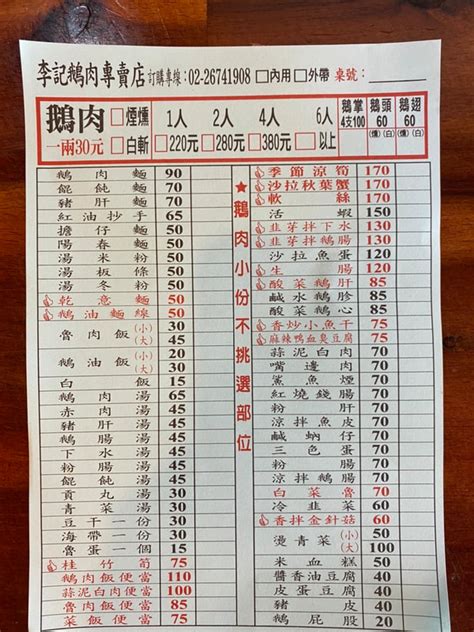 李記鵝肉專賣店 訂購專線:02-26741908 □內用 □外帶 桌號:
鵝肉 一兩30元
□煙燻 □白斬
1人 □220元
2人 □280元
4人 □380元
6人 □以上
鵝掌 4支100
鵝頭 60 (燻)(白)
鵝翅 60 (燻)(白)
★鵝肉小份不挑選部位
鵝肉麵 90
餛飩麵 70
豬肝麵 70
紅油抄手 65
擔仔麵 50
陽春麵 50
湯米粉 50
湯板條 50
湯冬粉 50
乾意麵 50
鵝油麵線 50
魯肉飯 (小) 30
(大) 45
鵝油飯 (小) 20
(大) 30
白飯 15
鵝肉湯 65
赤肉湯 45
豬肝湯 45
下水湯 45
粉腸湯 45
餛飩湯 45
貢丸湯 30
青菜湯 30
豆干一份 30
海帶一份 30
魯蛋一個 15
桂竹筍 75
鵝肉飯便當 110
蒜泥白肉便當 100
香腸飯便當 85
菜飯便當 75
季節涼筍 170
沙拉秋葉蟹 170
軟絲 170
活蝦 150
韭芽拌下水 130
韭芽拌鵝腸 130
沙拉魚蛋 120
生腸 120
酸菜鵝肝 85
鹹水鵝胗 85
酸菜鵝心 85
香炒小魚干 75
麻辣鴨血臭豆腐 75
蒜泥白肉 70
嘴邊肉 70
鯊魚煙 70
紅燒鰻 70
粉肝 70
涼拌魚皮 70
鹹蚋仔 70
三色蛋 70
粉腸 70
涼拌鵝腸 70
白菜魯 70
冷韭菜 60
香拌金針菇 60
燙青菜 (小) 50
(大) 100
米血糕 50
醬香油豆腐 40
皮蛋豆腐 40
豬皮 40
鵝屁股 20